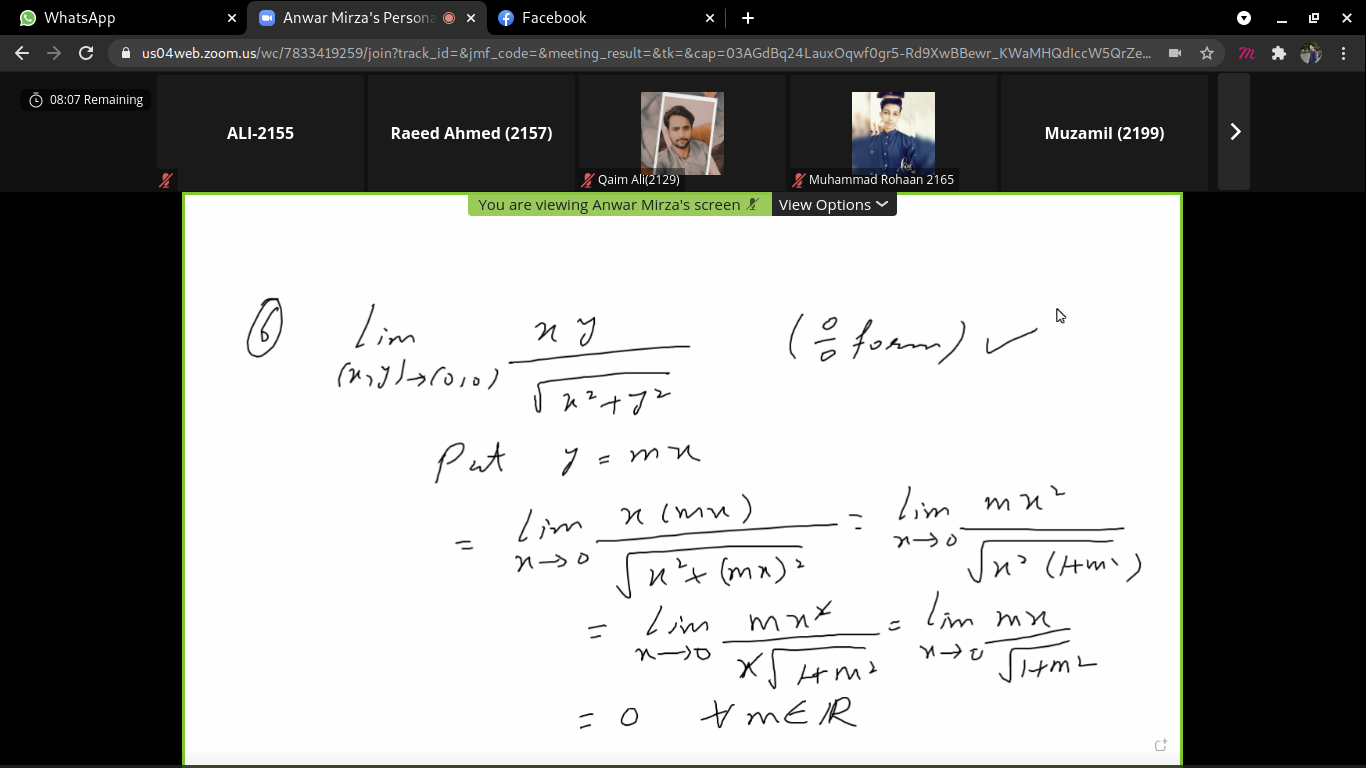 WhatsApp
Anwar Mirza's Persona
Facebook
us04web.zoom.us/wc/7833419259/join?track_id=&jmf_code=&meeting_result=&tk=&cap=03AGdBq24LauxOqwf0gr5-Rd9XwBBewr_KWaMHQdIccW5QrZe...
08:07 Remaining
ALI-2155
Raeed Ahmed (2157)
Muzamil (2199)
Qaim Ali(2129)
Muhammad Rohaan 2165
You are viewing Anwar Mirza's screen
View Options
⑥ Lim (x,y)→(0,0) xy / √(x²+y²) (0/0 form) ✓
Put y = mx
= Lim x→0 x(mx) / √(x²+(mx)²) = Lim x→0 mx² / √(x²(1+m²))
= Lim x→0 mx² / x√(1+m²) = Lim x→0 mx / √(1+m²)
= 0 ∀ m ∈ ℝ